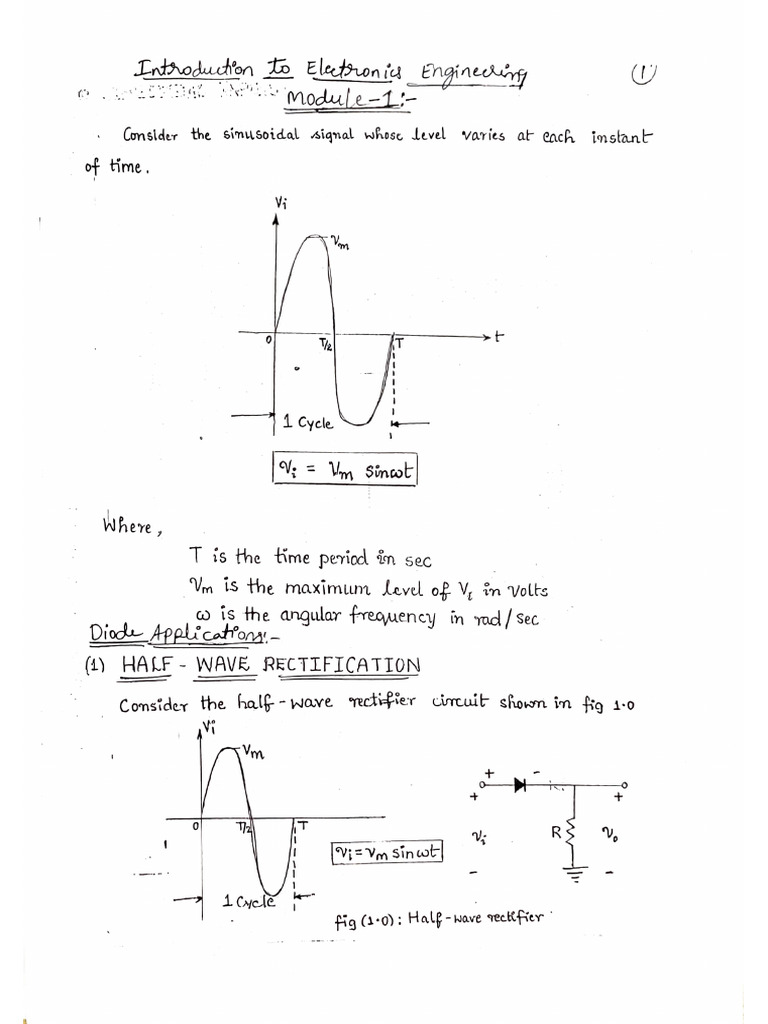 Introduction to Electronics Engineering
(1)
Module-1:-
Consider the sinusoidal signal whose level varies at each instant
of time.
Vi
Vm
0 T/2 T t
1 Cycle
Vi = Vm sinωt
Where,
T is the time period in sec
Vm is the maximum level of Vi in volts
ω is the angular frequency in rad/sec
Diode Applications:-
(1) HALF - WAVE RECTIFICATION
Consider the half-wave rectifier circuit shown in fig 1.0
Vi
Vm
0 T/2 T
1 Cycle
Vi = Vm sinωt
+ -
+ +
Vi R Vo
- -
fig (1.0): Half-wave rectifier